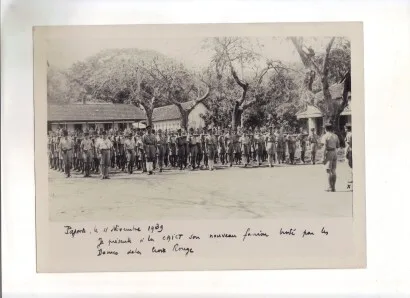 le 11 décembre 1939
Je présente à la son nouveau fanion brodé par les
Dames de la Croix Rouge